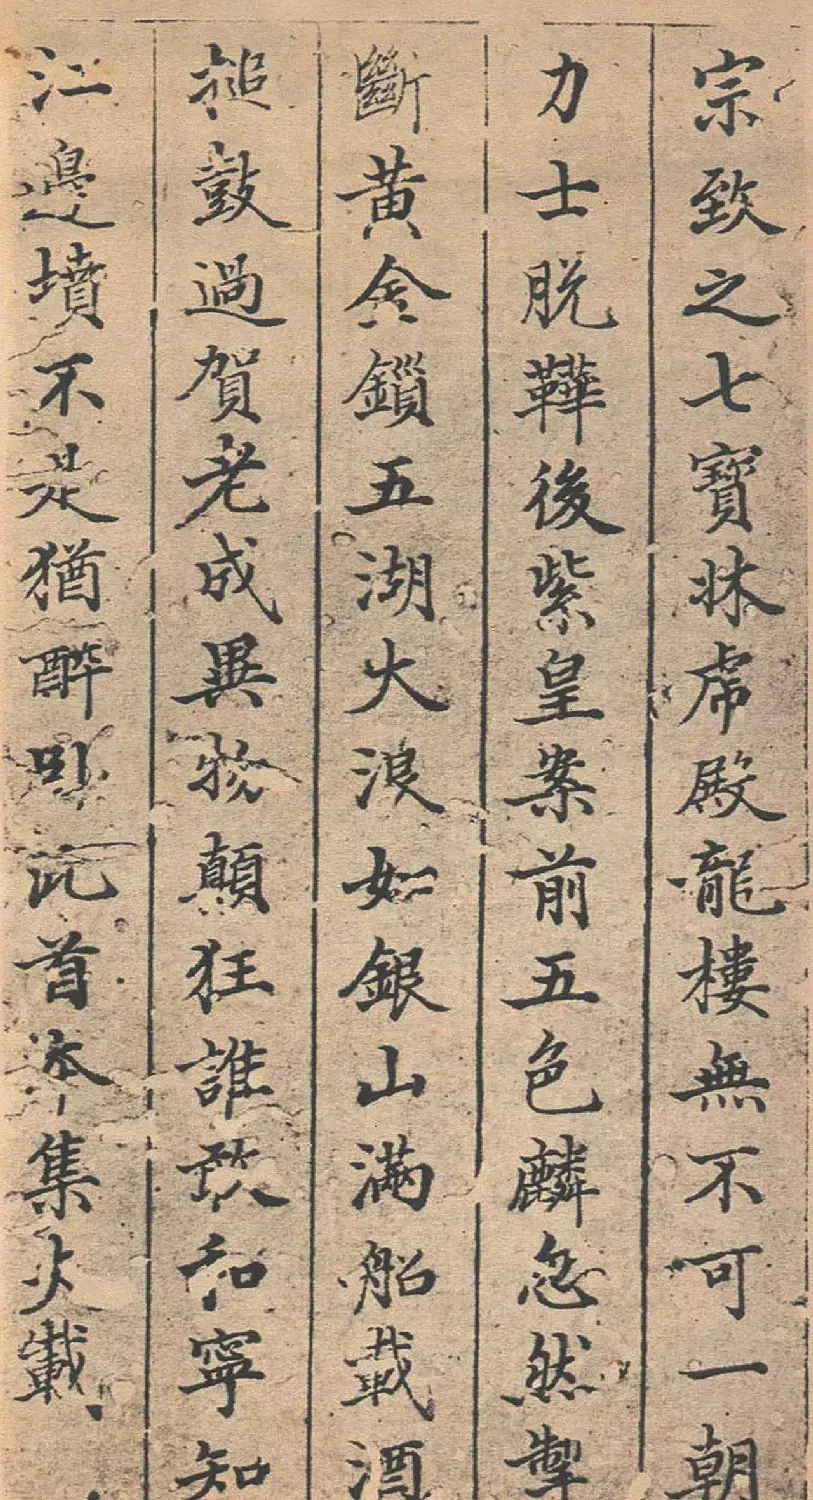 宗致之七寶牀虎殿龍樓無不可一朝
力士脫鞾後紫皇案前五色麟忽然掣
斷黃金鎖五湖大浪如銀山滿船載酒
搥鼓過賀老成異物顛狂誰敢和寧知
江邊墳不是猶醉卧此首本集火載